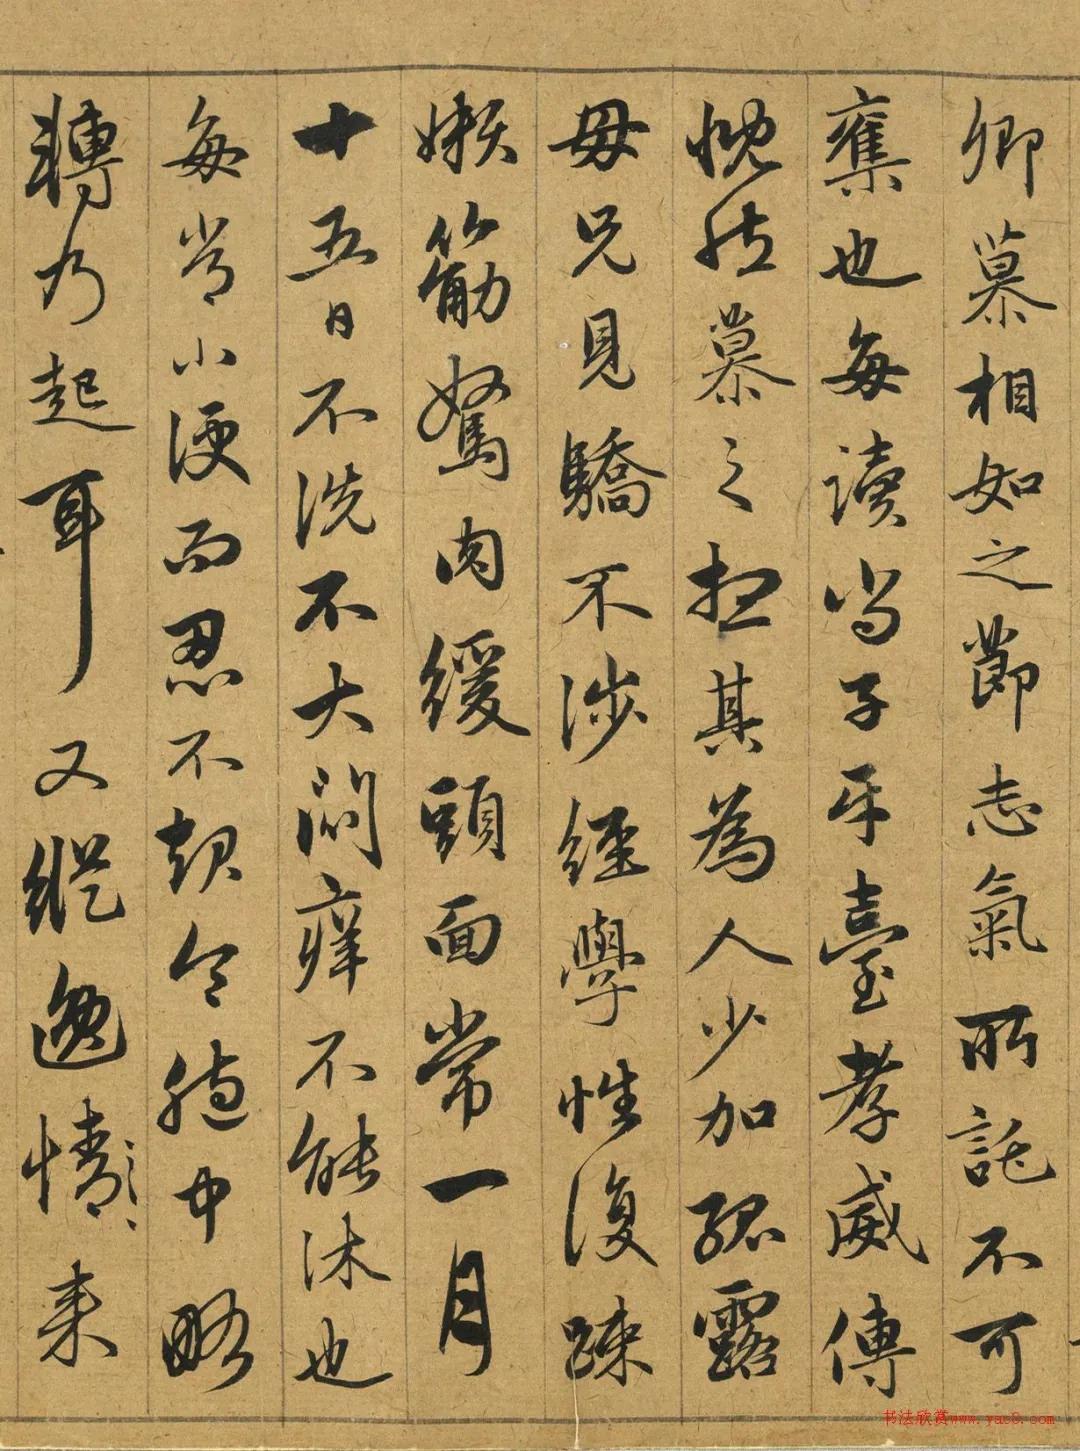 卿慕相如之節志氣所託不可
奪也每讀尚子平臺孝威傳
慨然慕之想其為人少加孤露
母兄見驕不涉經學性復疎
嬾筋駑肉緩頭面常一月
十五日不洗不大悶癢不能沐也
每常小便而忍不起令胞中略
轉乃起耳又縱逸情来
书法欣赏www.yac8.com